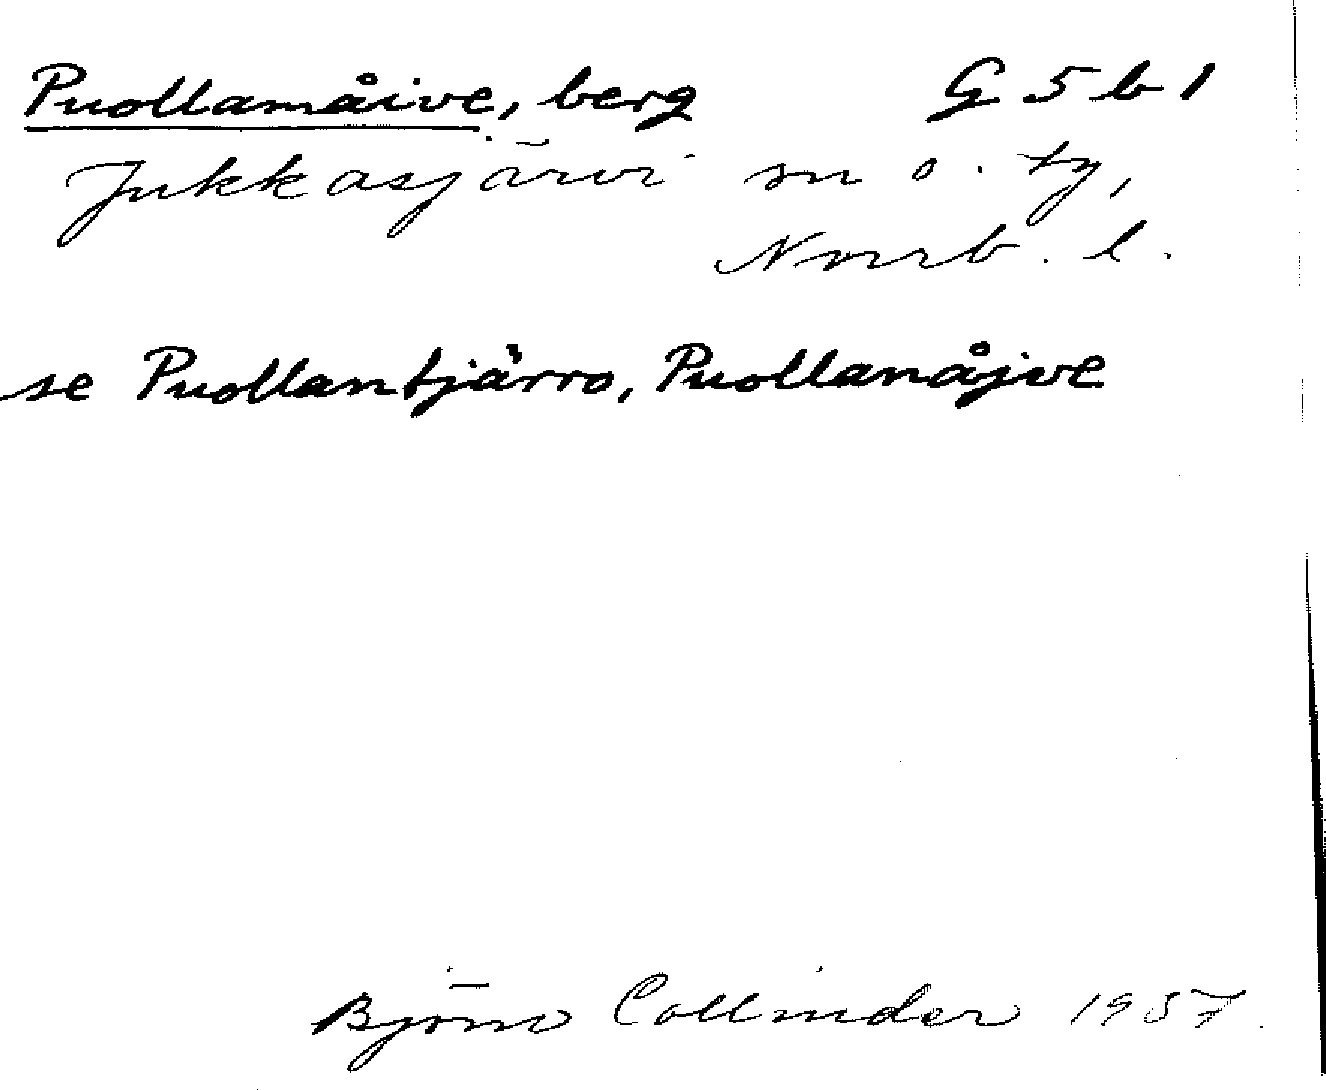 Puollamåive, berg G 5 b 1
Jukkasjärvi sn o. tg,
Norrb. l.
se Puollantjärro, Puollanåjve
Björn Collinder 1957.